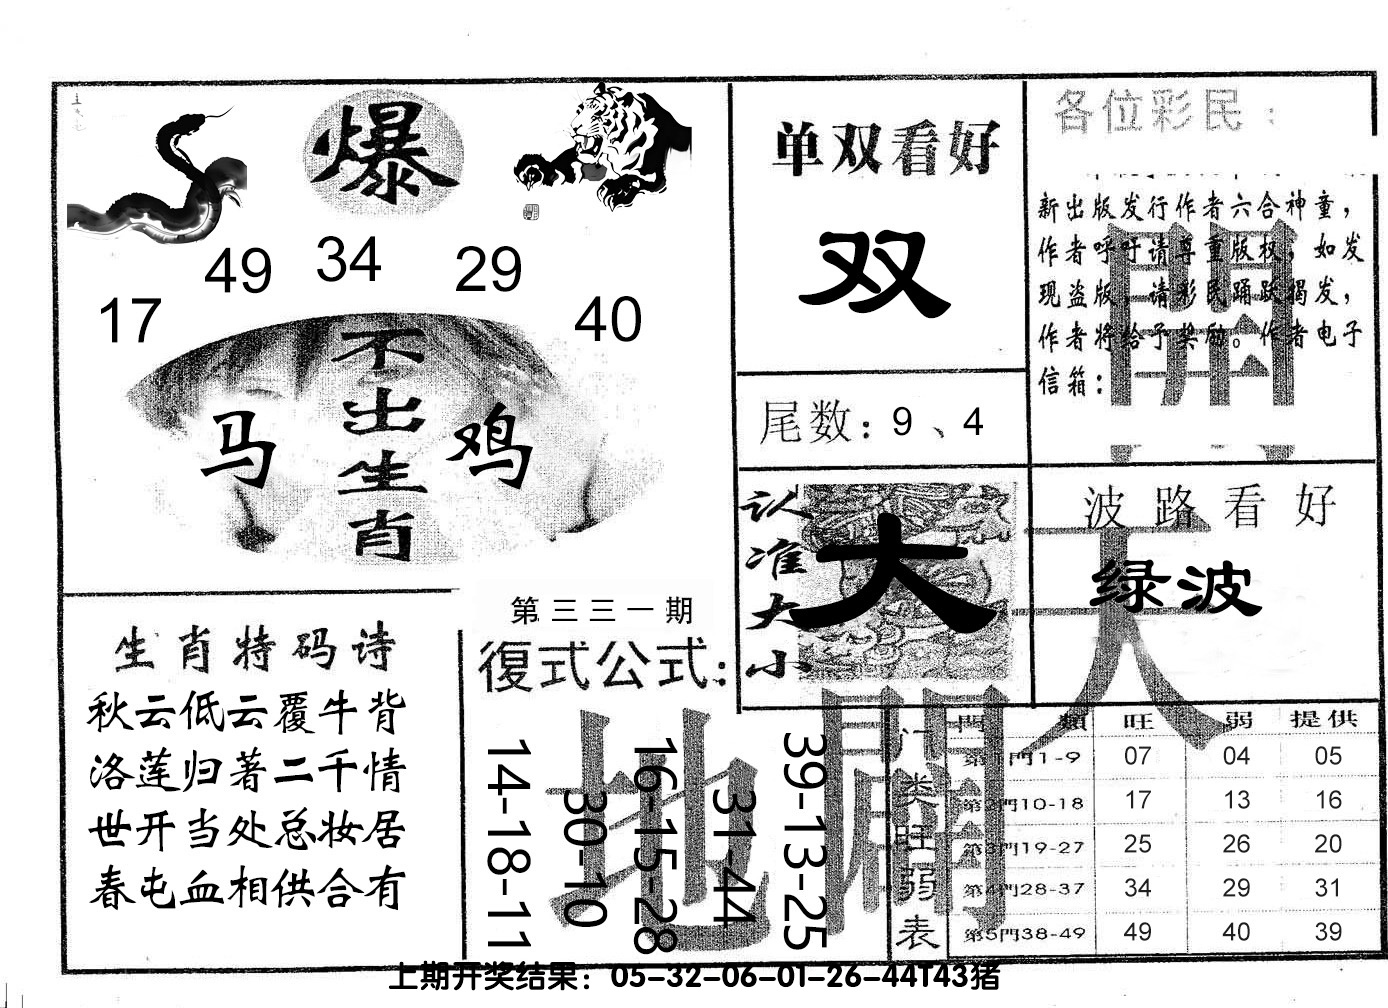 爆
49 34 29
17 40
不出生肖
马 鸡
单双看好
双
尾数：9 、4
认准大小
大
各位彩民：
新出版发行作者六合神童，
作者呼吁请尊重版权，如发
现盗版，请彩民踊跃揭发，
作者将给予奖励。作者电子
信箱：
開
天
波路看好
绿波
生肖特码诗
秋云低云覆牛背
洛莲归著二千情
世开当处总妆居
春屯血相供合有
第三三一期
復式公式：
14-18-11
30-10
16-15-28
31-44
39-13-25
地
門类旺弱表
門類 旺 弱 提供
第1門1-9 07 04 05
第2門10-18 17 13 16
第3門19-27 25 26 20
第4門28-37 34 29 31
第5門38-49 49 40 39
上期开奖结果：05-32-06-01-26-44T43猪